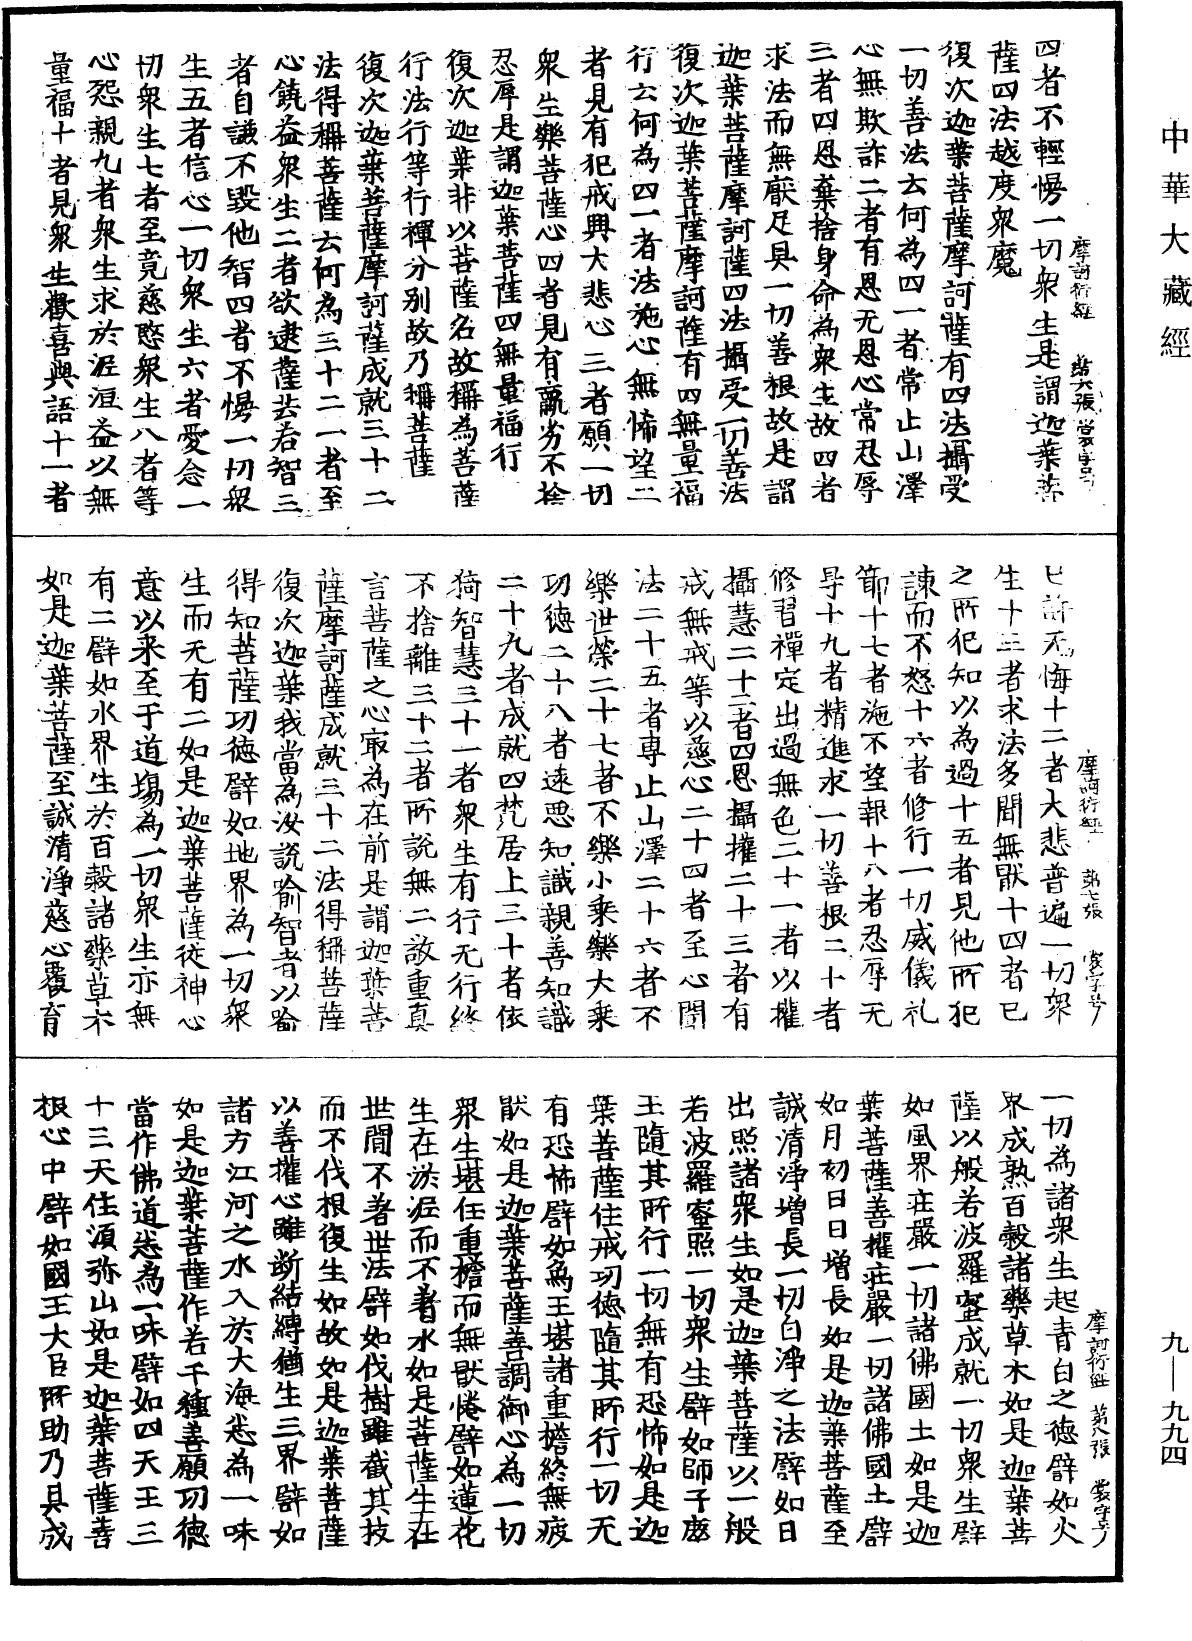 中華大藏經
四者不輕慢一切衆生是謂迦葉菩
薩四法越度衆魔
復次迦葉菩薩摩訶薩有四法攝受
一切善法云何為四一者常止山澤
心無欺詐二者有恩无恩心常忍辱
三者四恩棄捨身命為衆生故四者
求法而無厭足具一切善根故是謂
迦葉菩薩摩訶薩四法攝受一切善法
復次迦葉菩薩摩訶薩有四無量福
行云何為四一者法施心無悕望二
者見有犯戒興大悲心三者願一切
衆生樂菩薩心四者見有羸劣不捨
忍辱是謂迦葉菩薩四無量福行
復次迦葉非以菩薩名故稱為菩薩
行法行等行禪分別故乃稱菩薩
復次迦葉菩薩摩訶薩成就三十二
法得稱菩薩云何為三十二一者至
心饒益衆生二者欲逮薩芸若智三
者自謙不毀他智四者不慢一切衆
生五者信心一切衆生六者愛念一
切衆生七者至竟慈愍衆生八者等
心怨親九者衆生求於泥洹益以無
量福十者見衆生歡喜與語十一者
摩訶衍經 第六張 裳字号
已許无悔十二者大悲普遍一切衆
生十三者求法多聞無猒十四者已
之所犯知以為過十五者見他所犯
諫而不怒十六者修行一切威儀礼
節十七者施不望報十八者忍辱无
㝵十九者精進求一切善根二十者
修習禪定出過無色二十一者以權
攝慧二十二者四恩攝權二十三者有
戒無戒等以慈心二十四者至心聞
法二十五者專止山澤二十六者不
樂世榮二十七者不樂小乘樂大乘
功德二十八者遠惡知識親善知識
二十九者成就四梵居上三十者依
猗智慧三十一者衆生有行无行終
不捨離三十二者所說無二敬重真
言菩薩之心冣為在前是謂迦葉菩
薩摩訶薩成就三十二法得稱菩薩
復次迦葉我當為汝說喻智者以喻
得知菩薩功德譬如地界為一切衆
生而无有二如是迦葉菩薩從神心
意以来至于道場為一切衆生亦無
有二譬如水界生於百穀諸藥草木
如是迦葉菩薩至誠清淨慈心覆育
摩訶衍經 第七張 裳字号
一切為諸衆生起青白之德譬如火
界成熟百穀諸藥草木如是迦葉菩
薩以般若波羅蜜成就一切衆生譬
如風界莊嚴一切諸佛國土如是迦
葉菩薩善權莊嚴一切諸佛國土譬
如月初日日增長如是迦葉菩薩至
誠清淨增長一切白淨之法譬如日
出照諸衆生如是迦葉菩薩以一般
若波羅蜜照一切衆生譬如師子鹿
王隨其所行一切無有恐怖如是迦
葉菩薩住戒功德隨其所行一切无
有恐怖譬如為王堪諸重擔終無疲
猒如是迦葉菩薩善調御心為一切
衆生堪任重擔而無猒惓譬如蓮花
生在淤泥而不著水如是菩薩生在
世間不著世法譬如伐樹雖截其技
而不伐根復生如故如是迦葉菩薩
以善權心雖斷結縛猶生三界譬如
諸方江河之水入於大海悉為一味
如是迦葉菩薩作若千種善願功德
當作佛道悉為一味譬如四天王三
十三天住須弥山如是迦葉菩薩善
根心中譬如國王大臣所助乃具成
摩訶衍經 第八張 裳字号
九—九九四